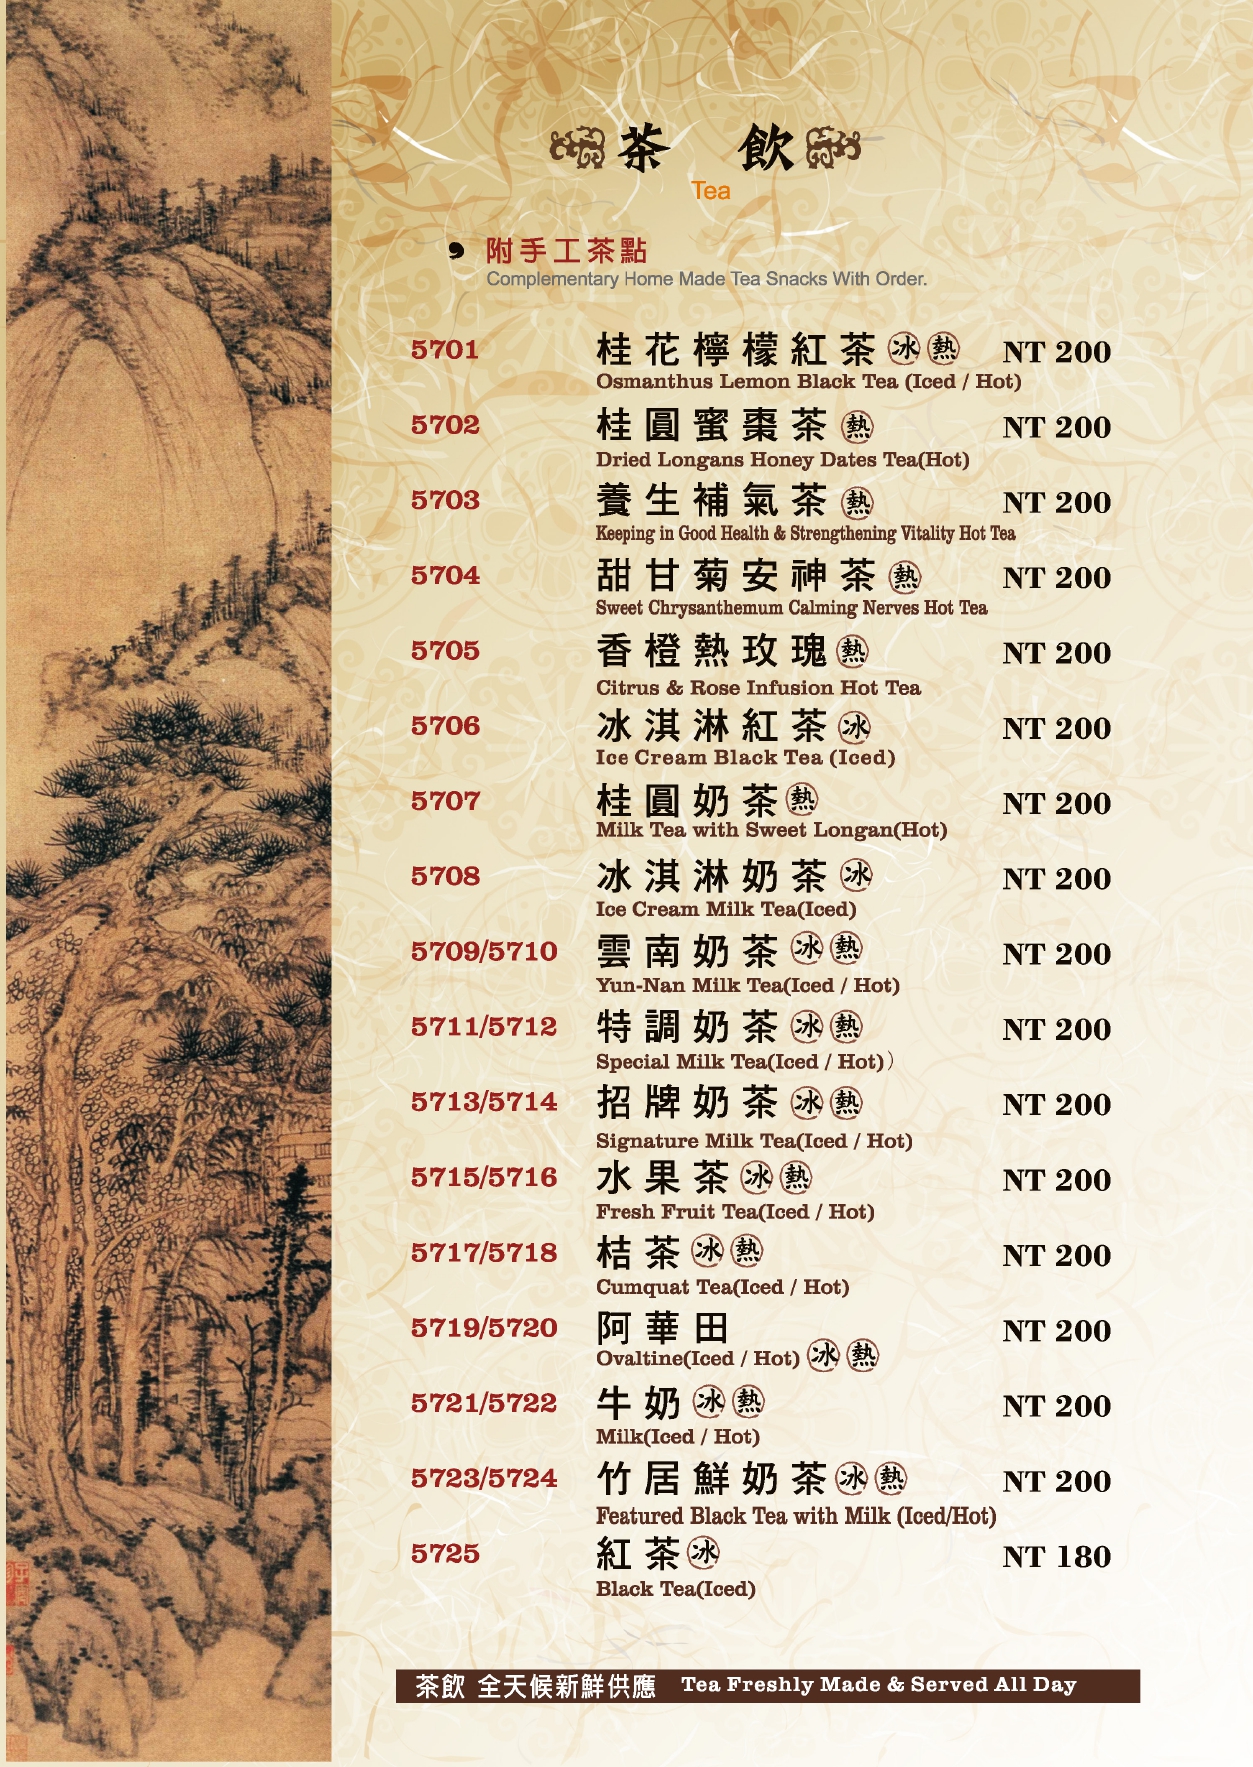 茶 飲
Tea
附手工茶點
Complementary Home Made Tea Snacks With Order.
5701 桂花檸檬紅茶 冰 熱 NT 200
Osmanthus Lemon Black Tea (Iced / Hot)
5702 桂圓蜜棗茶 熱 NT 200
Dried Longans Honey Dates Tea(Hot)
5703 養生補氣茶 熱 NT 200
Keeping in Good Health & Strengthening Vitality Hot Tea
5704 甜甘菊安神茶 熱 NT 200
Sweet Chrysanthemum Calming Nerves Hot Tea
5705 香橙熱玫瑰 熱 NT 200
Citrus & Rose Infusion Hot Tea
5706 冰淇淋紅茶 冰 NT 200
Ice Cream Black Tea (Iced)
5707 桂圓奶茶 熱 NT 200
Milk Tea with Sweet Longan(Hot)
5708 冰淇淋奶茶 冰 NT 200
Ice Cream Milk Tea(Iced)
5709/5710 雲南奶茶 冰 熱 NT 200
Yun-Nan Milk Tea(Iced / Hot)
5711/5712 特調奶茶 冰 熱 NT 200
Special Milk Tea(Iced / Hot)）
5713/5714 招牌奶茶 冰 熱 NT 200
Signature Milk Tea(Iced / Hot)
5715/5716 水果茶 冰 熱 NT 200
Fresh Fruit Tea(Iced / Hot)
5717/5718 桔茶 冰 熱 NT 200
Cumquat Tea(Iced / Hot)
5719/5720 阿華田 NT 200
Ovaltine(Iced / Hot) 冰 熱
5721/5722 牛奶 冰 熱 NT 200
Milk(Iced / Hot)
5723/5724 竹居鮮奶茶 冰 熱 NT 200
Featured Black Tea with Milk (Iced/Hot)
5725 紅茶 冰 NT 180
Black Tea(Iced)
茶飲 全天候新鮮供應 Tea Freshly Made & Served All Day